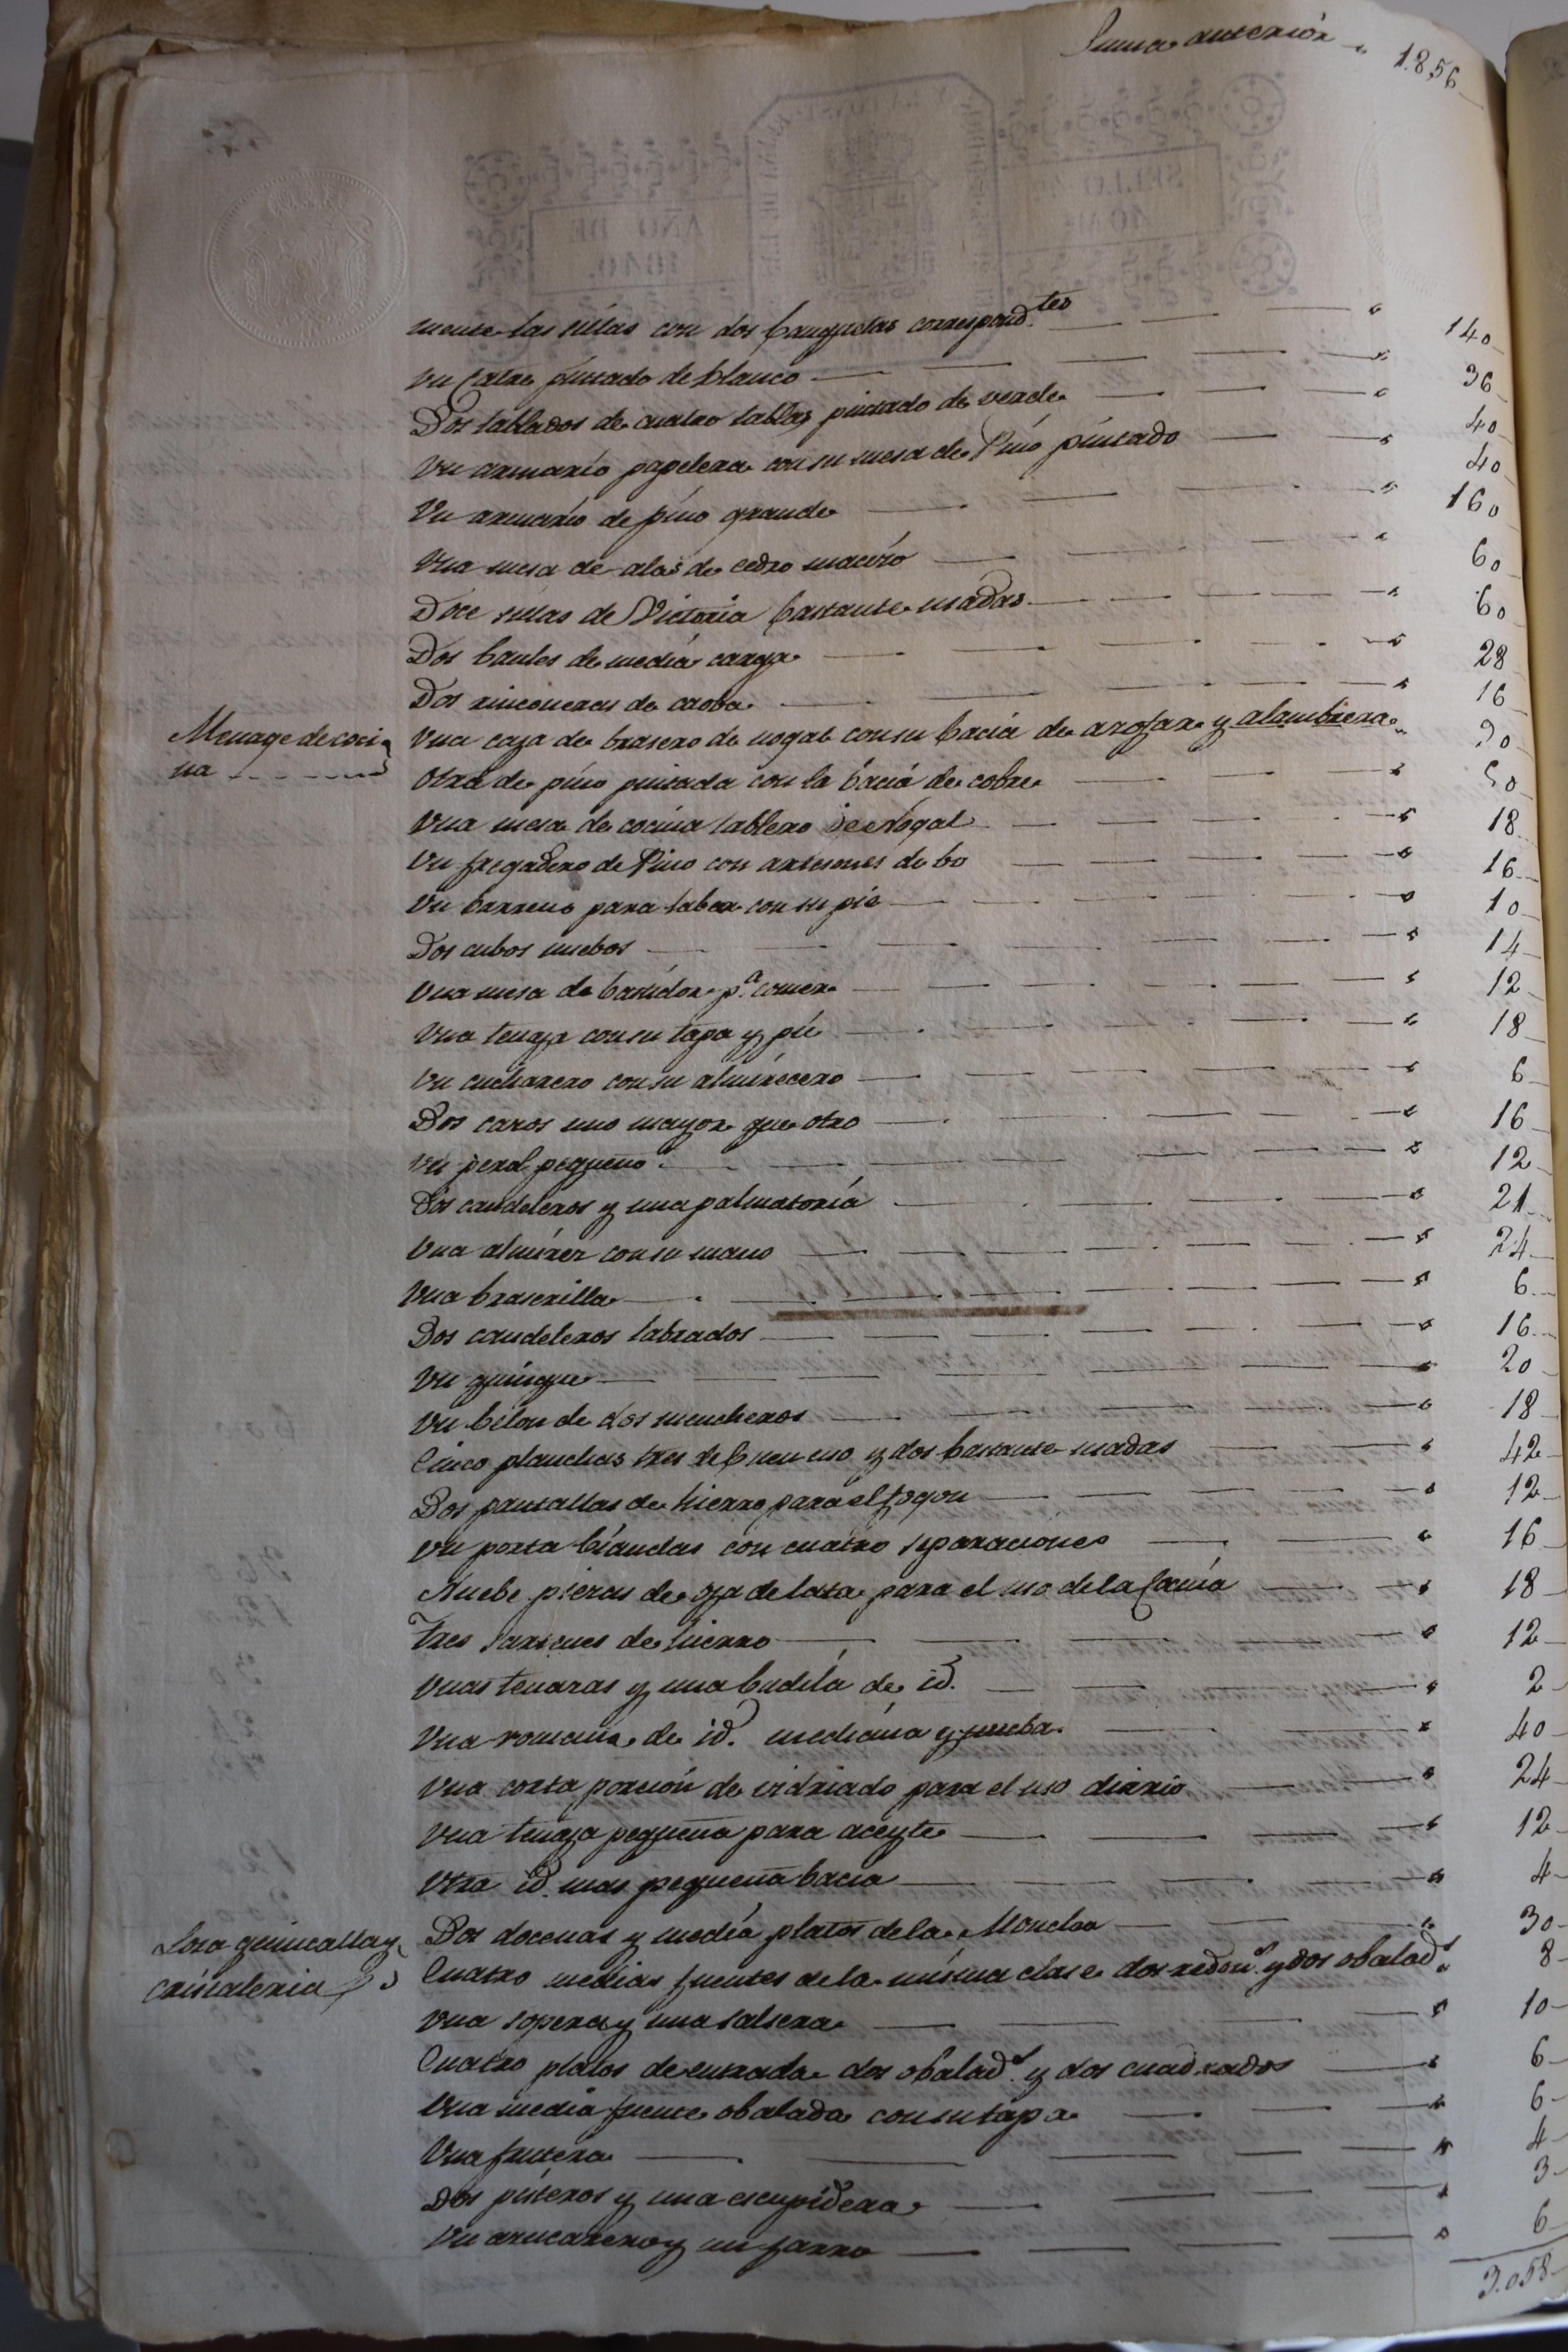 Suma anterior 1.856
mente las sillas con dos banquetas correspond.tes 140
Un Catre pintado de blanco 36
Dos tablados de cuatro tablas pintado de verde 40
Un armario papelera con su mesa de Pino pintado 40
Un armario de pino grande 160
Una mesa de alas de cedro macizo 60
Doce sillas de Victoria bastante usadas 60
Dos baules de media carga 28
Dos rinconeras de caoba 16
Menage de coci
na
Una caja de brasero de nogal con su bacia de azofar y alambrera 90
Otra de pino pintada con la bacia de cobre 50
Una mesa de cocina tablero de Nogal 18
Un fregadero de Pino con artesones de bo 16
Un barreno para labar con su pie 10
Dos cubos nuebos 14
Una mesa de bastidor p.a comer 12
Una tenaja con su tapa y pie 18
Un cucharero con su almirecero 6
Dos cazos uno mayor que otro 16
Un perol pequeño 12
Dos candeleros y una palmatoria 21
Una almirez con su mano 24
Una braserilla 6
Dos candeleros labrados 16
Un quinque 20
Un belon de dos mecheros 18
Cinco planchas tres de buen uso y dos bastante usadas 42
Dos pantallas de hierro para el fogon 12
Un porta biandas con cuatro separaciones 16
Nuebe piezas de oja de lata para el uso de la Cocina 18
Tres sartenes de hierro 12
Unas tenazas y una badila de id. 2
Una romana de id. mediana y nueba 40
Una corta porcion de vidriado para el uso diario 24
Una tenaja pequeña para aceyte 12
Otra id. mas pequeña bacia 4
Loza quincalla y
cristaleria
Dos docenas y media platos de la Moncloa 30
Cuatro medias fuentes de la misma clase dos redon.s y dos obalad.s 8
Una sopera y una salsera 10
Cuatro platos de entrada dos obalad.s y dos cuadrados 6
Una media fuente obalada con su tapa 6
Una frutera 4
Dos pisteros y una escupidera 3
Un azucarero y un jarro 6
3.058